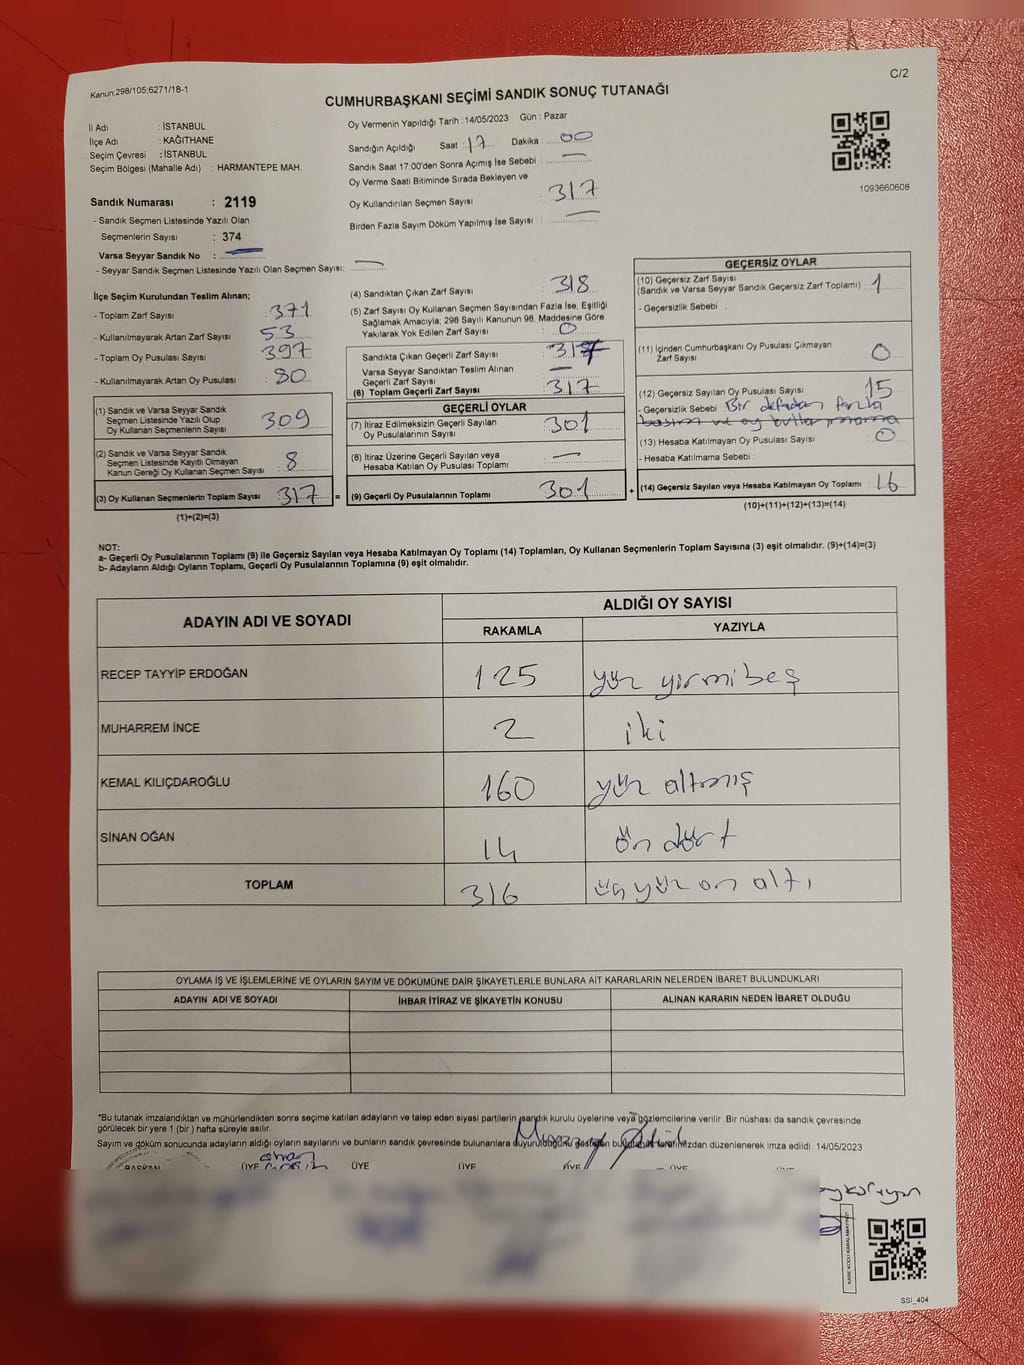 C/2
Kanun;298/105;6271/18-1
CUMHURBAŞKANI SEÇİMİ SANDIK SONUÇ TUTANAĞI
İl Adı : İSTANBUL
İlçe Adı : KAĞITHANE
Seçim Çevresi : İSTANBUL
Seçim Bölgesi (Mahalle Adı) : HARMANTEPE MAH.
Sandık Numarası : 2119
- Sandık Seçmen Listesinde Yazılı Olan
Seçmenlerin Sayısı : 374
Varsa Seyyar Sandık No :
- Seyyar Sandık Seçmen Listesinde Yazılı Olan Seçmen Sayısı:
Oy Vermenin Yapıldığı Tarih : 14/05/2023 Gün : Pazar
Sandığın Açıldığı Saat : 17 Dakika : 00
Sandık Saat 17:00'den Sonra Açımış İse Sebebi :
Oy Verme Saati Bitiminde Sırada Bekleyen ve
Oy Kullandırılan Seçmen Sayısı : 317
Birden Fazla Sayım Döküm Yapılmış İse Sayısı :
1093660608
İlçe Seçim Kurulundan Teslim Alınan;
- Toplam Zarf Sayısı : 371
- Kullanılmayarak Artan Zarf Sayısı : 53
- Toplam Oy Pusulası Sayısı : 397
- Kullanılmayarak Artan Oy Pusulası : 80
(1) Sandık ve Varsa Seyyar Sandık
Seçmen Listesinde Yazılı Olup
Oy Kullanan Seçmenlerin Sayısı : 309
(2) Sandık ve Varsa Seyyar Sandık
Seçmen Listesinde Kayıtlı Olmayan
Kanun Gereği Oy Kullanan Seçmen Sayısı : 8
(3) Oy Kullanan Seçmenlerin Toplam Sayısı : 317 =
(1)+(2)=(3)
(4) Sandıktan Çıkan Zarf Sayısı : 318
(5) Zarf Sayısı Oy Kullanan Seçmen Sayısından Fazla İse, Eşitliği
Sağlamak Amacıyla; 298 Sayılı Kanunun 98. Maddesine Göre
Yakılarak Yok Edilen Zarf Sayısı : 0
Sandıkta Çıkan Geçerli Zarf Sayısı : 317
Varsa Seyyar Sandıktan Teslim Alınan
Geçerli Zarf Sayısı :
(6) Toplam Geçerli Zarf Sayısı : 317
GEÇERLİ OYLAR
(7) İtiraz Edilmeksizin Geçerli Sayılan
Oy Pusulalarının Sayısı : 301
(8) İtiraz Üzerine Geçerli Sayılan veya
Hesaba Katılan Oy Pusulası Toplamı :
(9) Geçerli Oy Pusulalarının Toplamı : 301 +
GEÇERSİZ OYLAR
(10) Geçersiz Zarf Sayısı
(Sandık ve Varsa Seyyar Sandık Geçersiz Zarf Toplamı) : 1
- Geçersizlik Sebebi :
(11) İçinden Cumhurbaşkanı Oy Pusulası Çıkmayan
Zarf Sayısı : 0
(12) Geçersiz Sayılan Oy Pusulası Sayısı : 15
- Geçersizlik Sebebi : Bir defadan fazla
(13) Hesaba Katılmayan Oy Pusulası Sayısı : 0
- Hesaba Katılmama Sebebi :
(14) Geçersiz Sayılan veya Hesaba Katılmayan Oy Toplamı : 16
(10)+(11)+(12)+(13)=(14)
NOT:
a- Geçerli Oy Pusulalarının Toplamı (9) ile Geçersiz Sayılan veya Hesaba Katılmayan Oy Toplamı (14) Toplamları, Oy Kullanan Seçmenlerin Toplam Sayısına (3) eşit olmalıdır. (9)+(14)=(3)
b- Adayların Aldığı Oyların Toplamı, Geçerli Oy Pusulalarının Toplamına (9) eşit olmalıdır.
ADAYIN ADI VE SOYADI
ALDIĞI OY SAYISI
RAKAMLA YAZIYLA
RECEP TAYYİP ERDOĞAN 125 yüz yirmi beş
MUHARREM İNCE 2 iki
KEMAL KILIÇDAROĞLU 160 yüz altmış
SİNAN OĞAN 14 ön dört
TOPLAM 316 üç yüz on altı
OYLAMA İŞ VE İŞLEMLERİNE VE OYLARIN SAYIM VE DÖKÜMÜNE DAİR ŞİKAYETLERLE BUNLARA AİT KARARLARIN NELERDEN İBARET BULUNDUKLARI
ADAYIN ADI VE SOYADI İHBAR İTİRAZ VE ŞİKAYETİN KONUSU ALINAN KARARIN NEDEN İBARET OLDUĞU
*Bu tutanak imzalandıktan ve mühürlendikten sonra seçime katılan adayların ve talep eden siyasi partilerin sandık kurulu üyelerine veya gözlemcilerine verilir. Bir nüshası da sandık çevresinde
görülecek bir yere 1 (bir) hafta süreyle asılır.
Sayım ve döküm sonucunda adayların aldığı oyların sayılarını ve bunların sandık çevresinde bulunanlara duyurulduğunu gösteren bu tutanak tarafımızdan düzenlenerek imza edildi. 14/05/2023
BAŞKAN ÜYE ÜYE ÜYE ÜYE ÜYE
KARE KODU KARALAMAYINIZ!
SSI_404